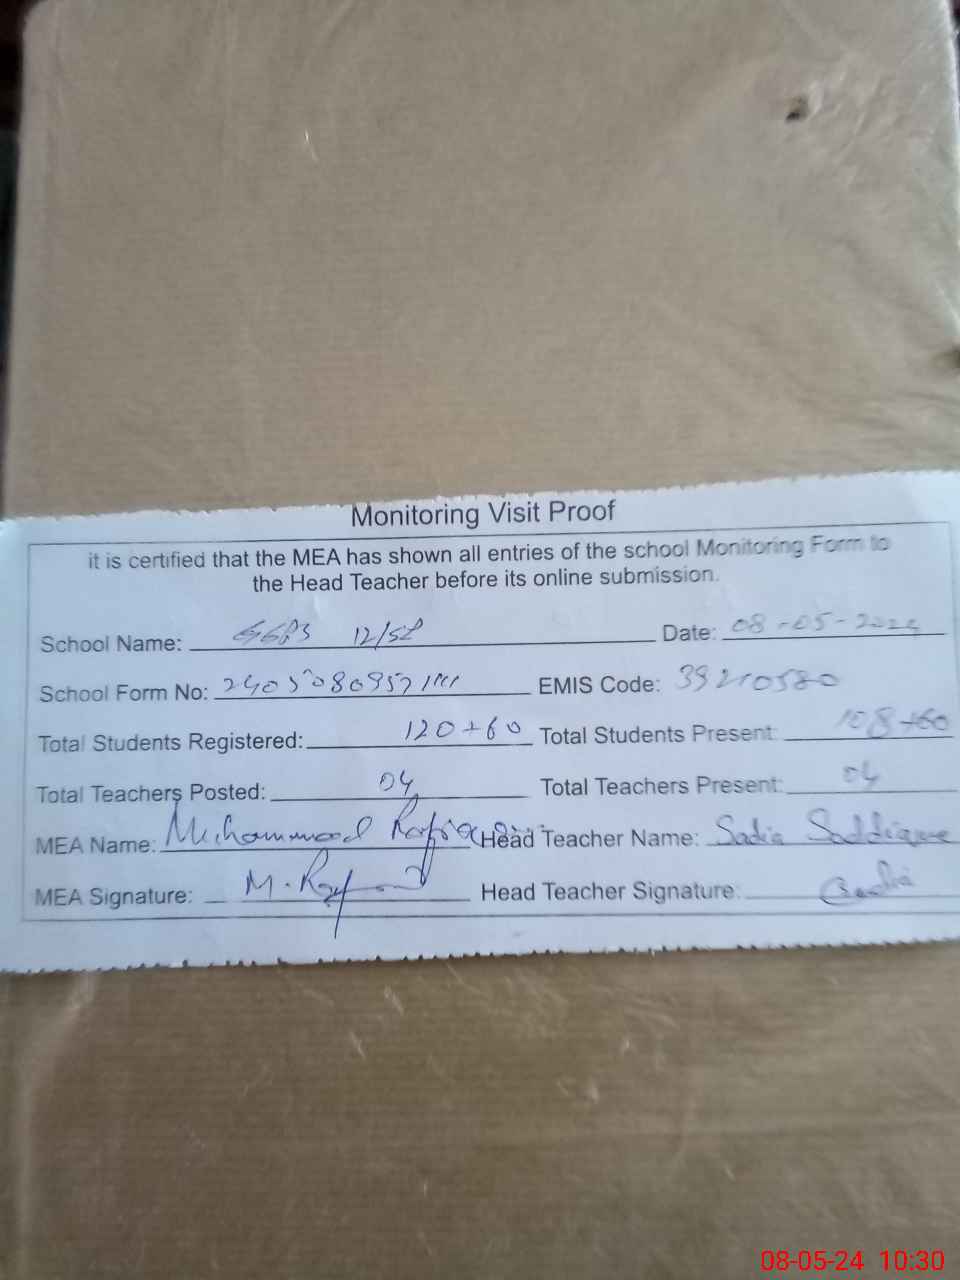 Monitoring Visit Proof
it is certified that the MEA has shown all entries of the school Monitoring Form to
the Head Teacher before its online submission.
School Name: GGPS 12/SP Date: 08-05-2024
School Form No: EMIS Code: 39210580
Total Students Registered: 120+60 Total Students Present: 108+60
Total Teachers Posted: 04 Total Teachers Present: 04
MEA Name: Muhammad Head Teacher Name: Sadia Saddique
MEA Signature: Head Teacher Signature: Sadia
08-05-24 10:30